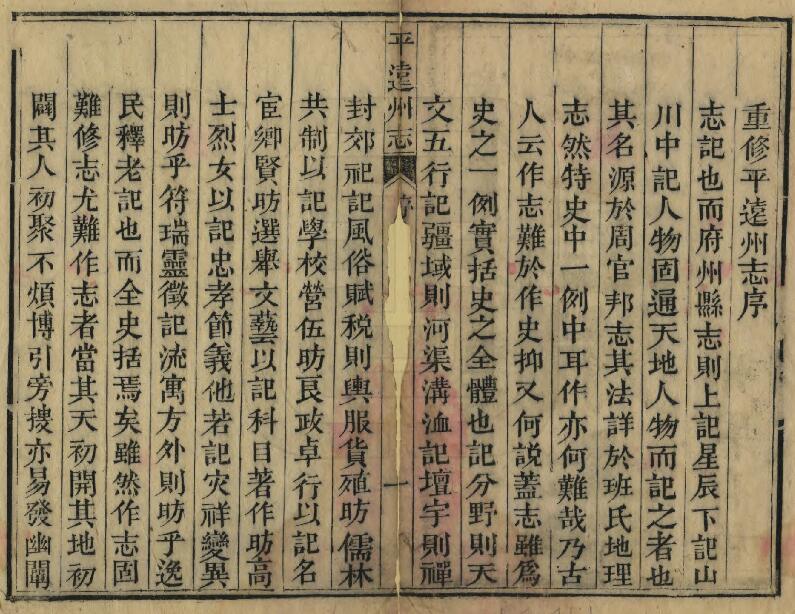 重修平遠州志序
志記也而府州縣志則上記星辰下記山
川中記人物固通天地人物而記之者也
其名源於周官邦志其法詳於班氏地理
志然特史中一例中耳作亦何難哉乃古
人云作志難於作史抑又何説蓋志雖爲
史之一例實括史之全體也記分野則天
文五行記疆域則河渠溝洫記壇宇則禪
平遠州志 序 一
封郊祀記風俗賦税則輿服貨殖昉儒林
共制以記學校營伍昉良政卓行以記名
宦鄉賢昉選舉文藝以記科目著作昉高
士烈女以記忠孝節義他若記灾祥變異
則昉乎符瑞靈徵記流寓方外則昉乎逸
民釋老記也而全史括焉矣雖然作志固
難修志尤難作志者當其天初開其地初
闢其人初聚不煩博引旁搜亦易發幽闡